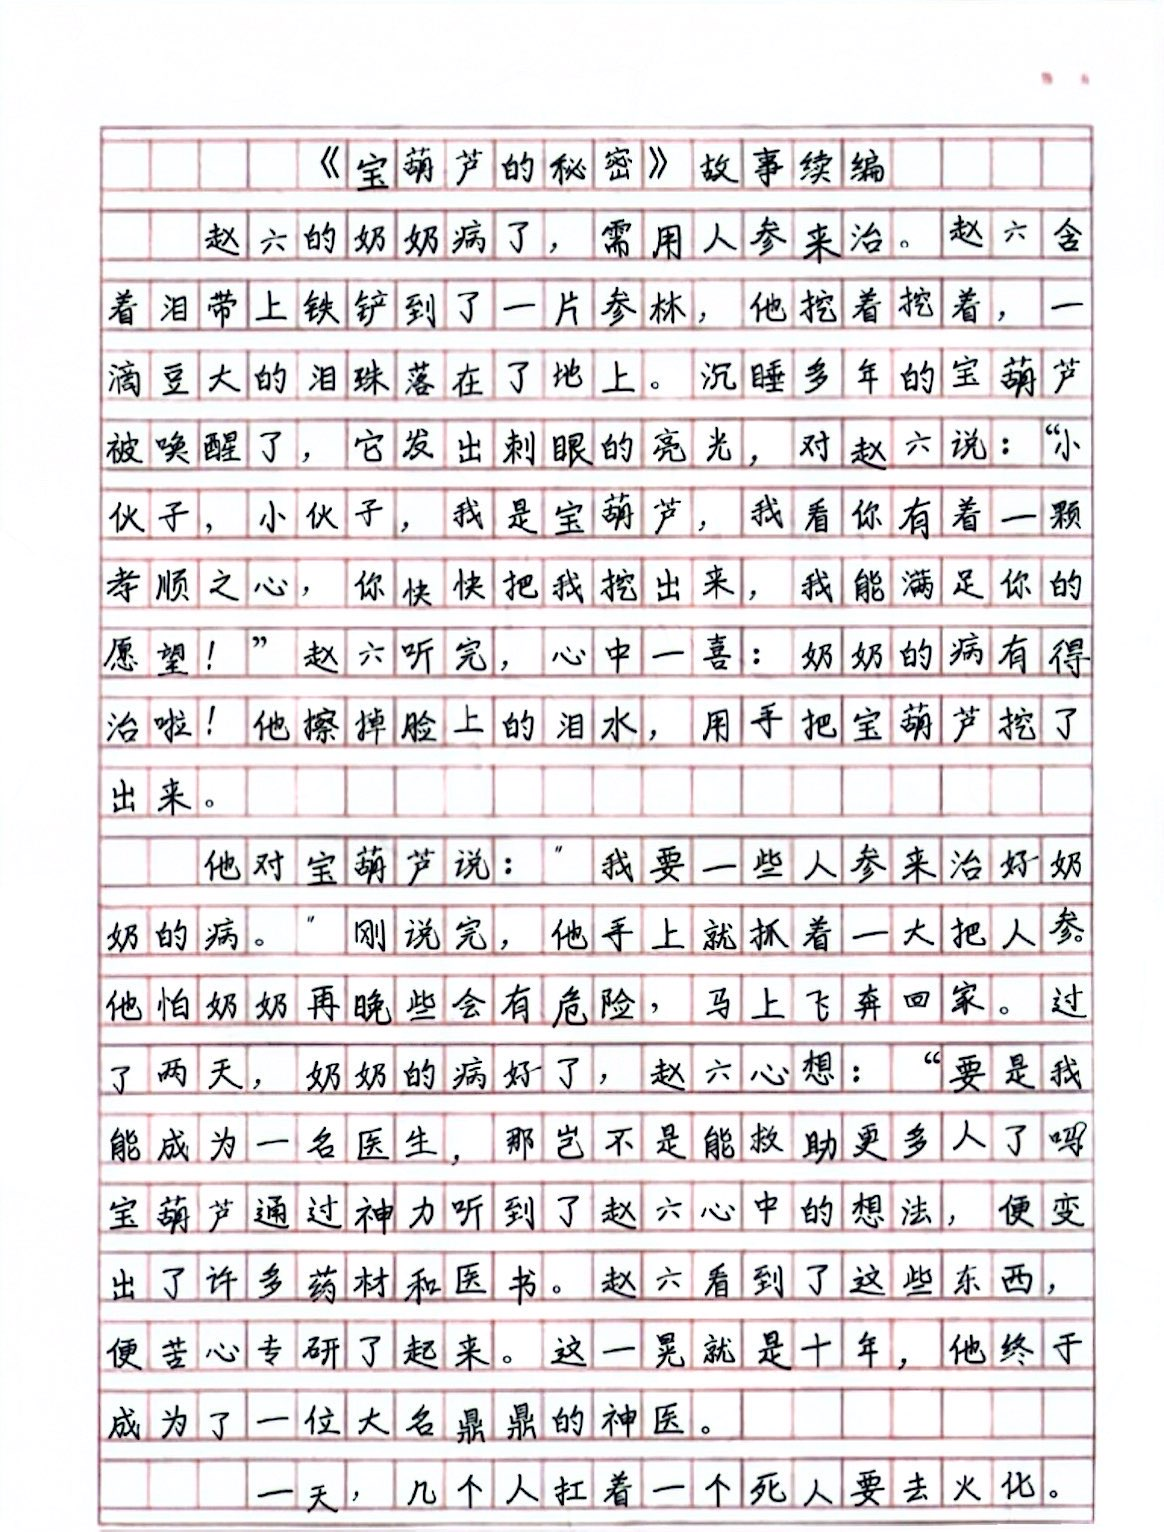 《宝葫芦的秘密》故事续编
赵六的奶奶病了，需用人参来治。赵六含
着泪带上铁铲到了一片参林，他挖着挖着，一
滴豆大的泪珠落在了地上。沉睡多年的宝葫芦
被唤醒了，它发出刺眼的亮光，对赵六说：“小
伙子，小伙子，我是宝葫芦，我看你有着一颗
孝顺之心，你快快把我挖出来，我能满足你的
愿望！”赵六听完，心中一喜：奶奶的病有得
治啦！他擦掉脸上的泪水，用手把宝葫芦挖了
出来。
他对宝葫芦说："我要一些人参来治好奶
奶的病。"刚说完，他手上就抓着一大把人参。
他怕奶奶再晚些会有危险，马上飞奔回家。过
了两天，奶奶的病好了，赵六心想：“要是我
能成为一名医生，那岂不是能救助更多人了吗？
宝葫芦通过神力听到了赵六心中的想法，便变
出了许多药材和医书。赵六看到了这些东西，
便苦心专研了起来。这一晃就是十年，他终于
成为了一位大名鼎鼎的神医。
一天，几个人扛着一个死人要去火化。